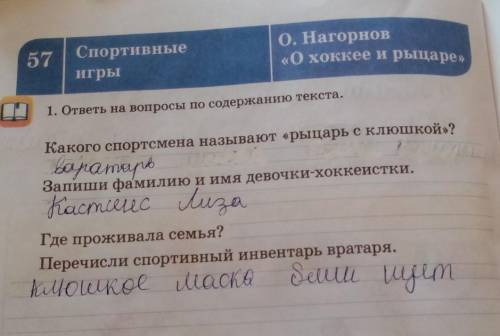 57 Спортивные игры
О. Нагорнов
«О хоккее и рыцаре»
1. Ответь на вопросы по содержанию текста.
Какого спортсмена называют «рыцарь с клюшкой»?
варатарь
Запиши фамилию и имя девочки-хоккеистки.
Лиза
Где проживала семья?
Перечисли спортивный инвентарь вратаря.
маска щит